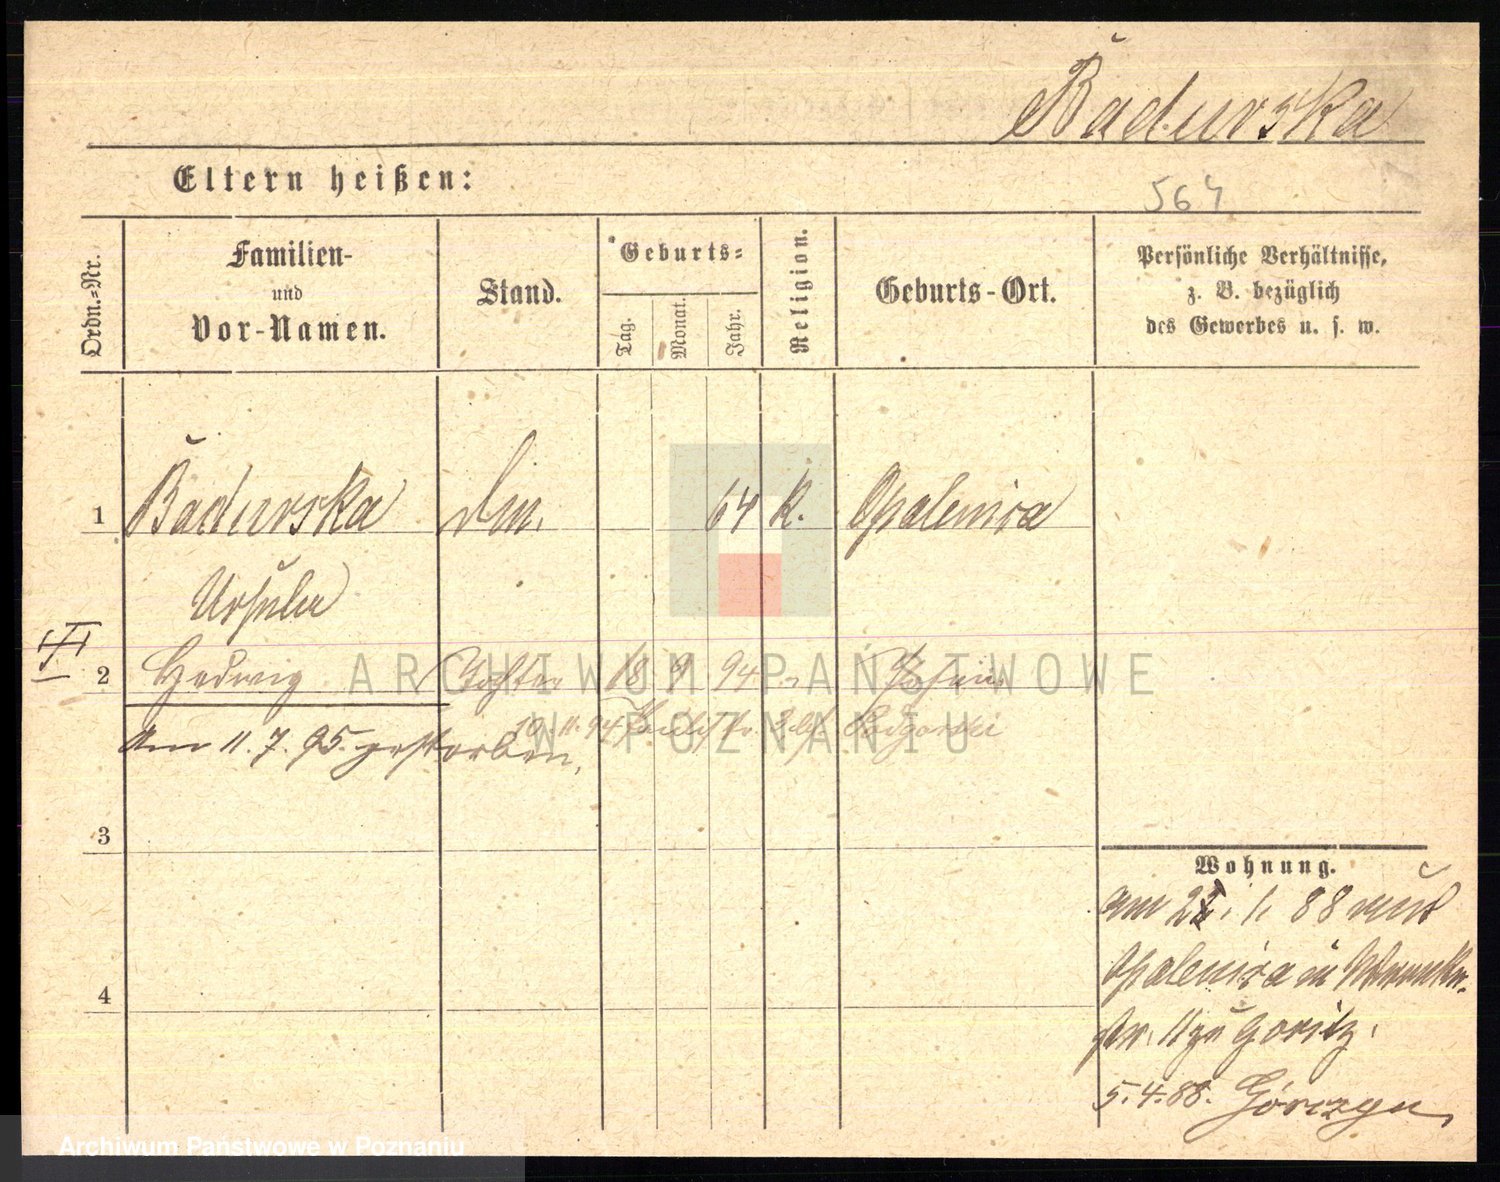 Badurska
Eltern heißen:
564
Ordn.-Nr.
Familien-
und
Vor-Namen.
Stand.
Geburts-
Tag.
Monat.
Jahr.
Religion.
Geburts-Ort.
Persönliche Verhältnisse,
z. B. bezüglich
des Gewerbes u. s. w.
1 Badurska Dm. 64 K. Opalenica
Ursula
2 Hedwig Tochter 18 9 94 Posen
10.11.94
am 11.7.95. gestorben.
3
4
Wohnung.
am 22. 1. 88 aus
Opalenica in
11 zu Goritz.
5.4.88. Górczyn
ARCHIWUM PAŃSTWOWE
W POZNANIU
Archiwum Państwowe w Poznaniu